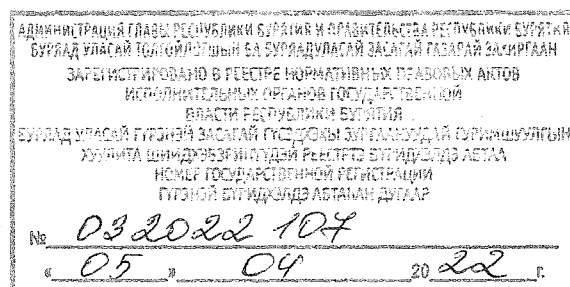 АДМИНИСТРАЦИЯ ГЛАВЫ РЕСПУБЛИКИ БУРЯТИЯ И ПРАВИТЕЛЬСТВА РЕСПУБЛИКИ БУРЯТИЯ
БУРЯАД УЛАСАЙ ТОЛГОЙЛОГШЫН БА БУРЯАД УЛАСАЙ ЗАСАГАЙ ГАЗАРАЙ ЗАХИРГААН
ЗАРЕГИСТРИРОВАНО В РЕЕСТРЕ НОРМАТИВНЫХ ПРАВОВЫХ АКТОВ
ИСПОЛНИТЕЛЬНЫХ ОРГАНОВ ГОСУДАРСТВЕННОЙ
ВЛАСТИ РЕСПУБЛИКИ БУРЯТИЯ
БУРЯАД УЛАСАЙ ГҮРЭНЭЙ ЗАСАГАЙ
ХУУЛИТА РЕЕСТРТЭ БҮРИДХЭЛДЭ АБТАА
НОМЕР ГОСУДАРСТВЕННОЙ РЕГИСТРАЦИИ
ГҮРЭНЭЙ БҮРИДХЭЛДЭ АБТАҺАН ДУГААР
№ 032022 107
« 05 » 04 20 22 г.